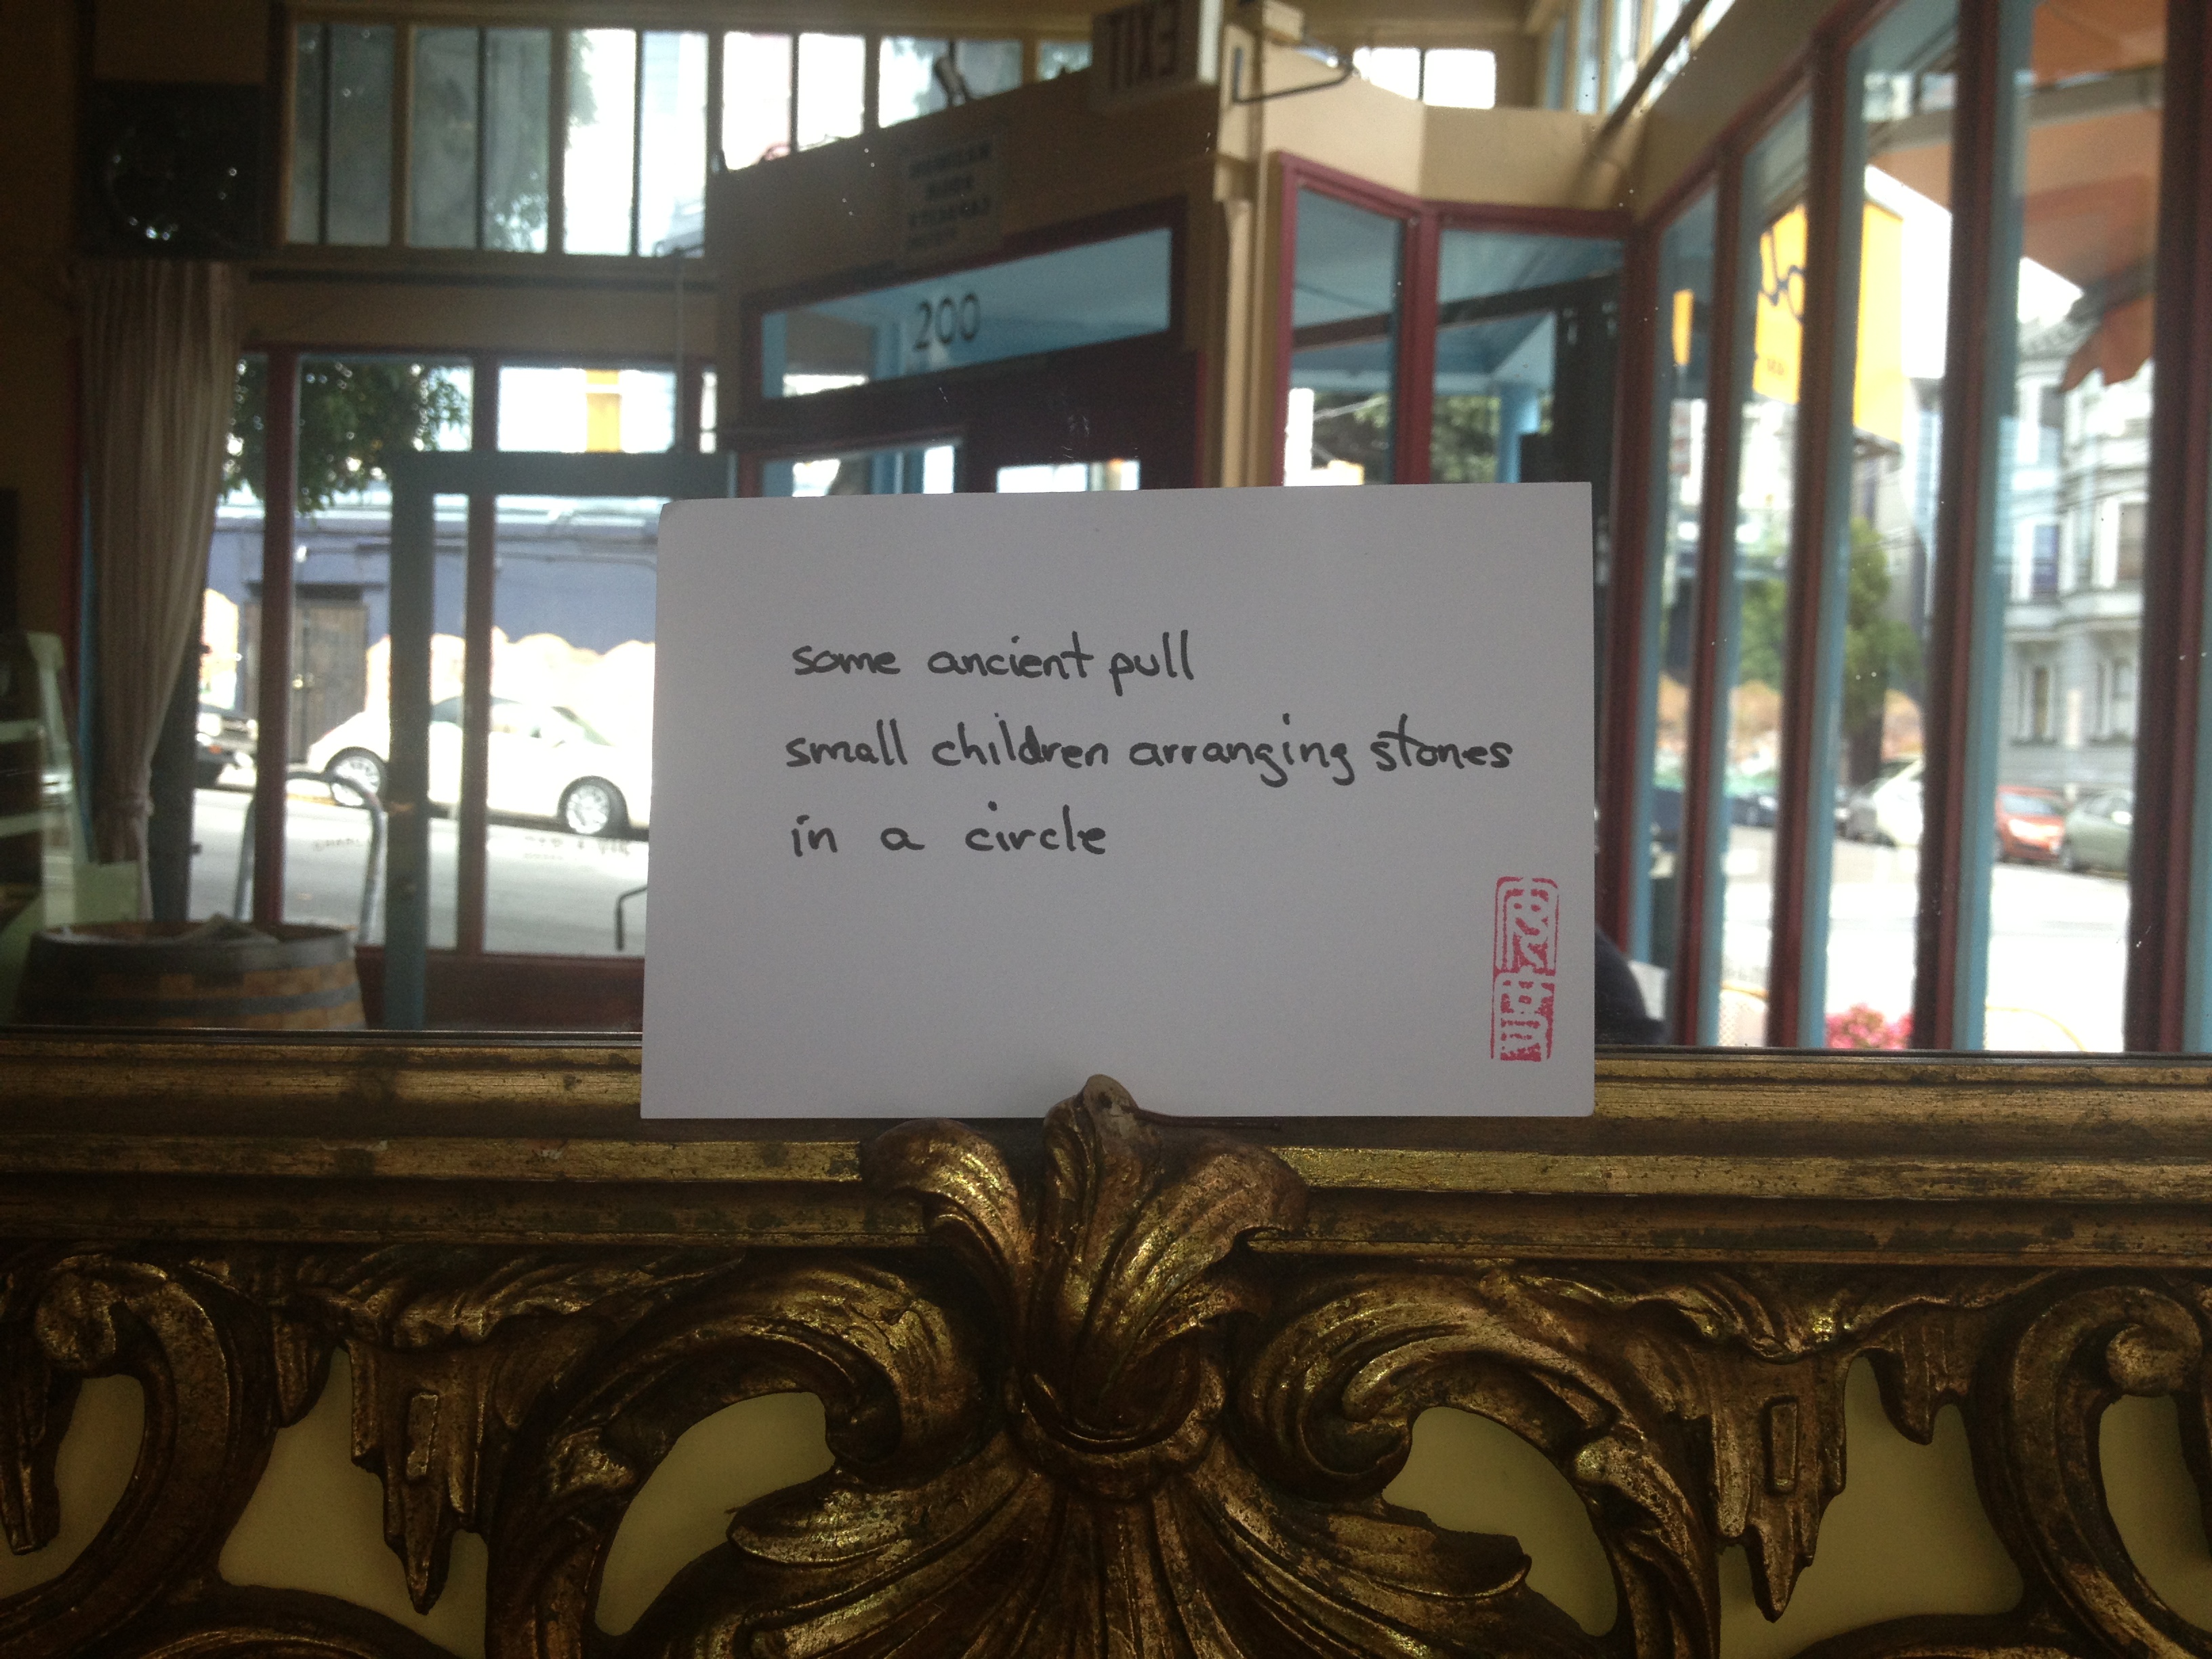 EXIT
200
some ancient pull
small children arranging stones
in a circle